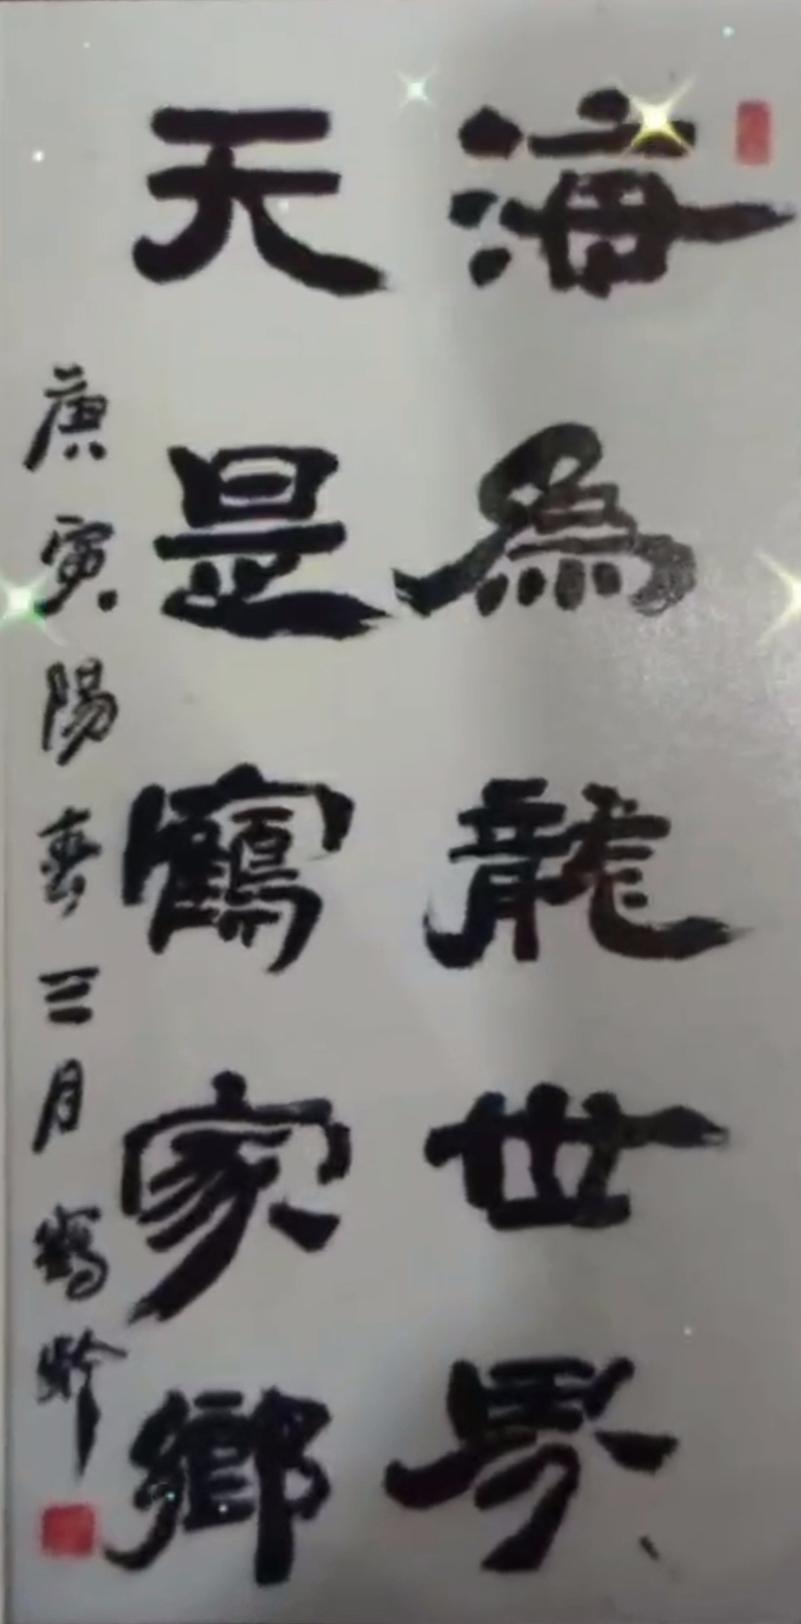 海為龍世界
天是鶴家鄉
庚寅陽春三月鶴齡